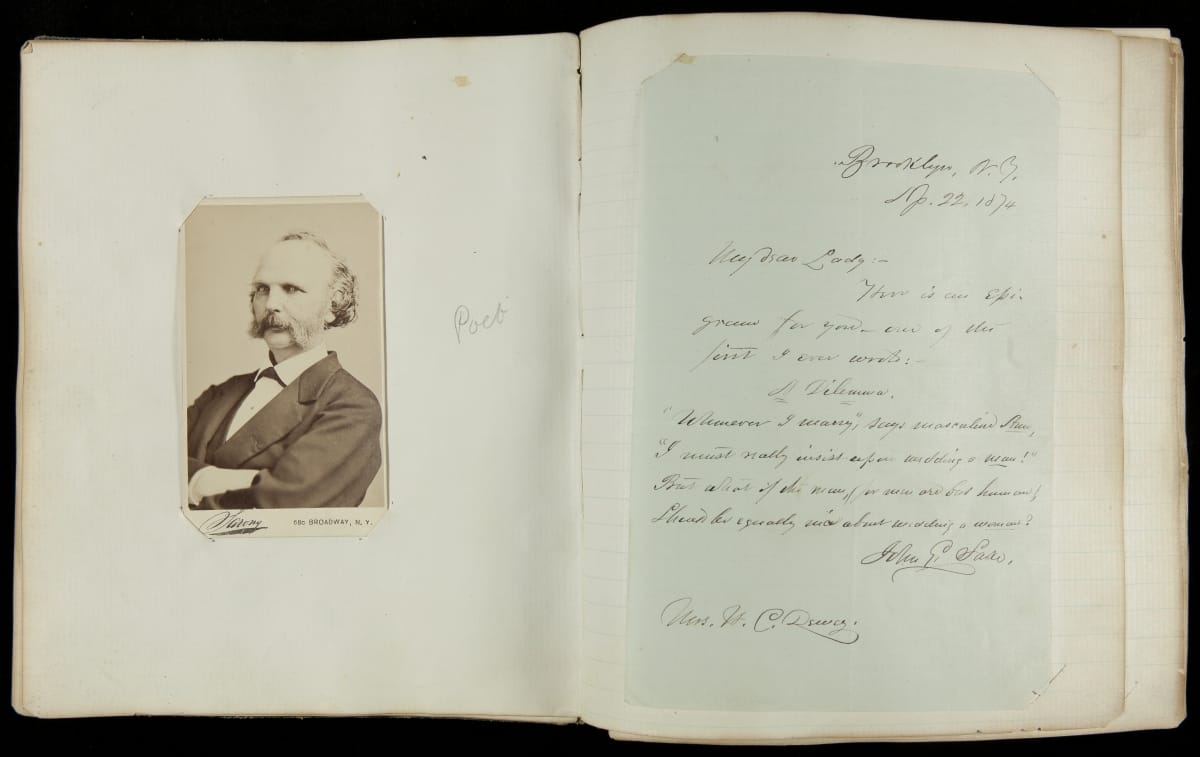 Poet
Sarony
680 BROADWAY, N.Y.
Brooklyn, N.Y.
Ap. 22, 1874
My dear Lady:—
Here is an Epi-
gram for you — one of the
first I ever wrote:—
A Dilemma.
"Whenever I marry", says masculine Ann,
"I must really insist upon wedding a man!"
But what if the man, (for men are but human)
Should be equally nice about wedding a woman?
John G. Saxe.
Mrs. W. C. Dewey.